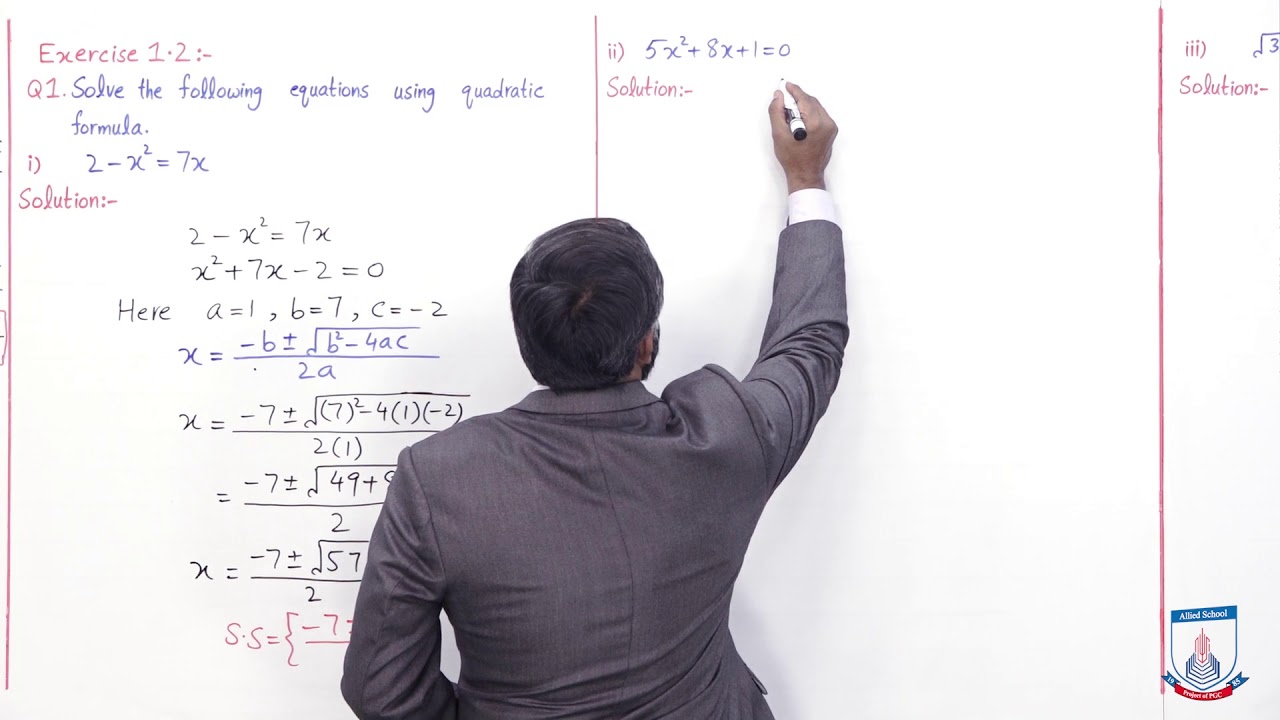 Exercise 1.2:-
Q1. Solve the following equations using quadratic
formula.
i) 2 - x² = 7x
Solution:-
2 - x² = 7x
x² + 7x - 2 = 0
Here a=1, b=7, c=-2
x = -b ± √b² - 4ac / 2a
x = -7 ± √(7)² - 4(1)(-2) / 2(1)
= -7 ± √49+ / 2
x = -7 ± √57 / 2
S.S = { -7 ±
ii) 5x² + 8x + 1 = 0
Solution:-
iii) √3
Solution:-
Allied School
19 85
Project of PGC